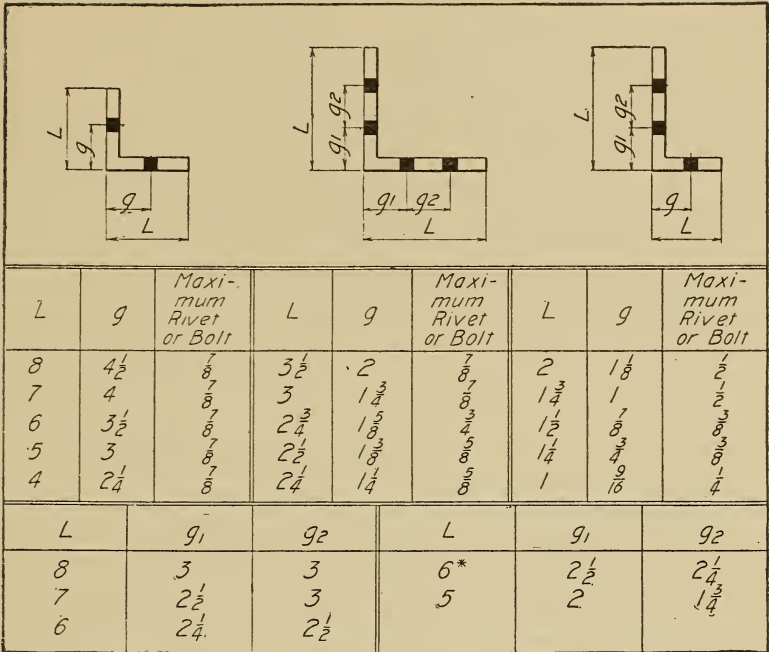 L
g
g
L
L
g2
g1
g1 g2
L
L
g2
g1
g
L
L g Maxi-mum Rivet or Bolt L g Maxi-mum Rivet or Bolt L g Maxi-mum Rivet or Bolt
8 4 1/2 7/8 3 1/2 2 7/8 2 1 1/8 1/2
7 4 7/8 3 1 3/4 7/8 1 3/4 1 1/2
6 3 1/2 7/8 2 3/4 1 5/8 3/4 1 1/2 7/8 3/8
5 3 7/8 2 1/2 1 3/8 5/8 1 1/4 3/4 3/8
4 2 1/4 7/8 2 1/4 1 1/4 5/8 1 9/16 1/4
L g1 g2 L g1 g2
8 3 3 6* 2 1/2 2 1/4
7 2 1/2 3 5 2 1 3/4
6 2 1/4 2 1/2